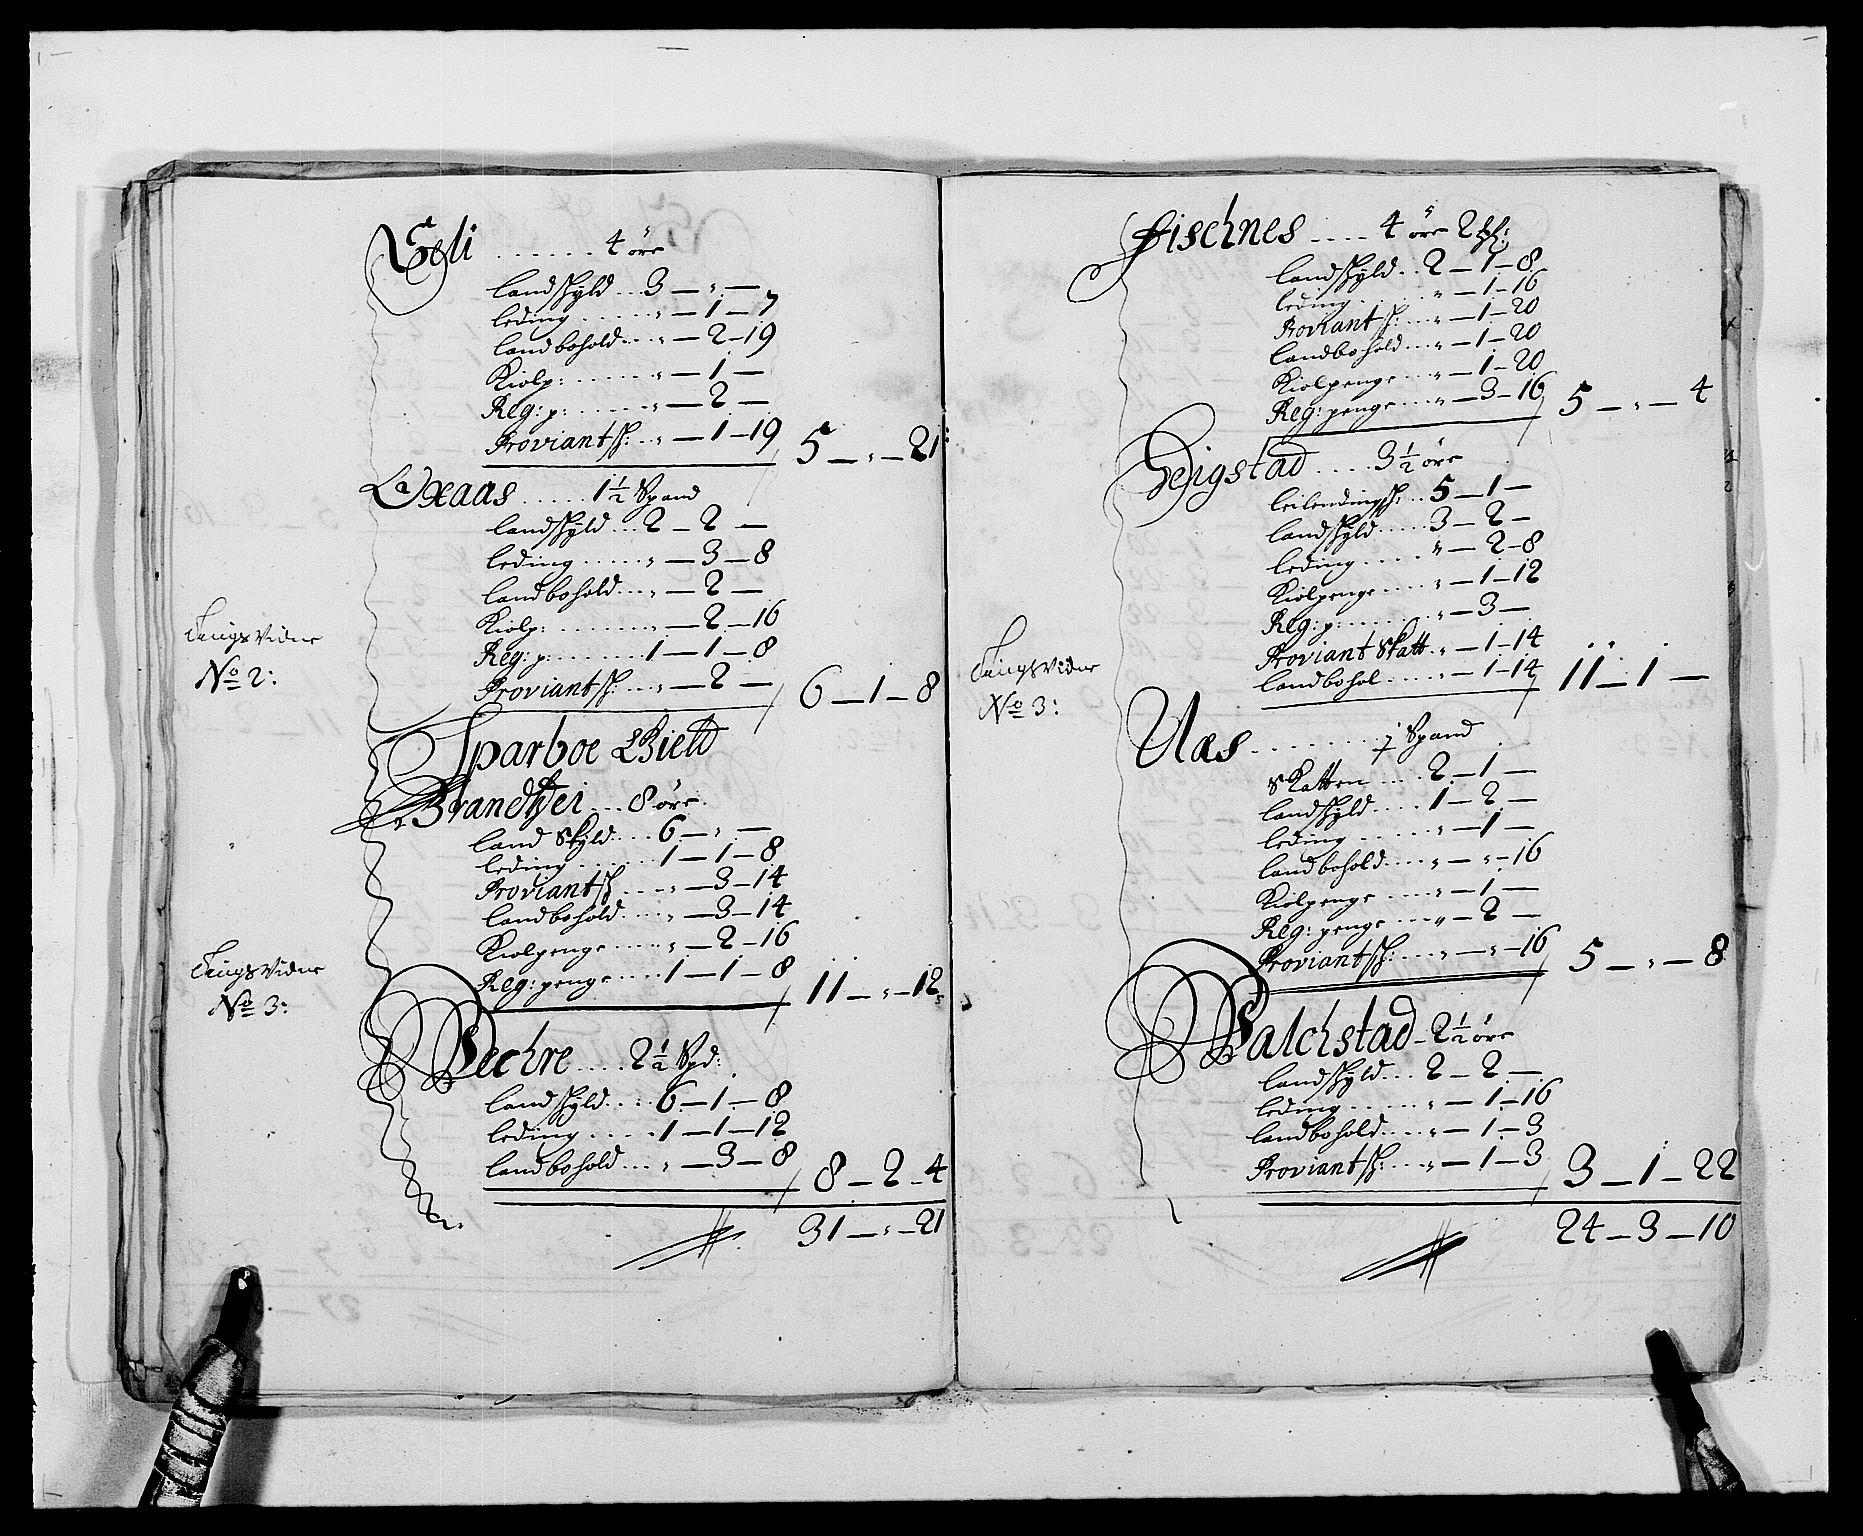 Eeli ...... 4 öre
landskyld ... 3 — " —
leding ...... " — 1 — 7
landbohold ... " — 2 — 19
Kiolp: ...... " — 1 —
Reg: p: ...... " — 2 —
Proviantsk: .. " — 1 — 19 5 — " — 21
Oxaas ..... 1½ Spand
landskyld ... 2 — 2 —
leding ..... " — 3 — 8
landbohold ... " — 2 —
Tingsvidne
Kiolp: ....... " — 2 — 16
No 2:
Reg: p: ....... 1 — 1 — 8
Proviantsk: ... " — 2 — 6 — 1 — 8
Sparboe Gield
Brandhei ... 8 öre
land Skyld ... 6 — " —
leding ...... 1 — 1 — 8
Proviantsk .... " — 3 — 14
landbohold .... " — 3 — 14
Kiolpenge ..... " — 2 — 16
Tingsvidne
Reg: penge .... 1 — 1 — 8 11 — " — 12
No 3:
Vechre .... 2½ Spd:
landskyld .... 6 — 1 — 8
leding ..... 1 — 1 — 12
landbohold ... " — 3 — 8 8 — 2 — 4
31 — " — 21
Fischnes .... 4 öre 2
landskyld .. 2 — 1 — 8
leding ..... " — 1 — 16
Proviantsk: ... " — 1 — 20
landbohold ... " — 1 — 20
Kiolpenge ... " — 1 — 20
Reg: penge ... " — 3 — 16 5 — " — 4
.... 3½ öre
leilendingsk: .. 5 — 1 —
landskyld ..... 3 — 2 —
leding ..... " — 2 — 8
Kiolpenge .... " — 1 — 12
Reg: p: ....... " — 3 —
Proviant Skatt .. " — 1 — 14
Tingsvidne
landbohol ..... " — 1 — 14 11 — 1 —
No 3:
Aas ......... j Spand
Skatten .... 2 — 1 —
landskyld .... 1 — 2 —
leding ...... " — 1 —
landbohold .... " — " — 16
Kiolpenge .... " — 1 —
Reg: penge .... " — 2 —
Proviantsk: ... " — " — 16 5 — " — 8
Valchstad — 2½ öre
landskyld ... 2 — 2 —
leding ...... " — 1 — 16
landbohold .... " — 1 — 3
Proviantsk: .... " — 1 — 3 3 — 1 — 22
24 — 3 — 10